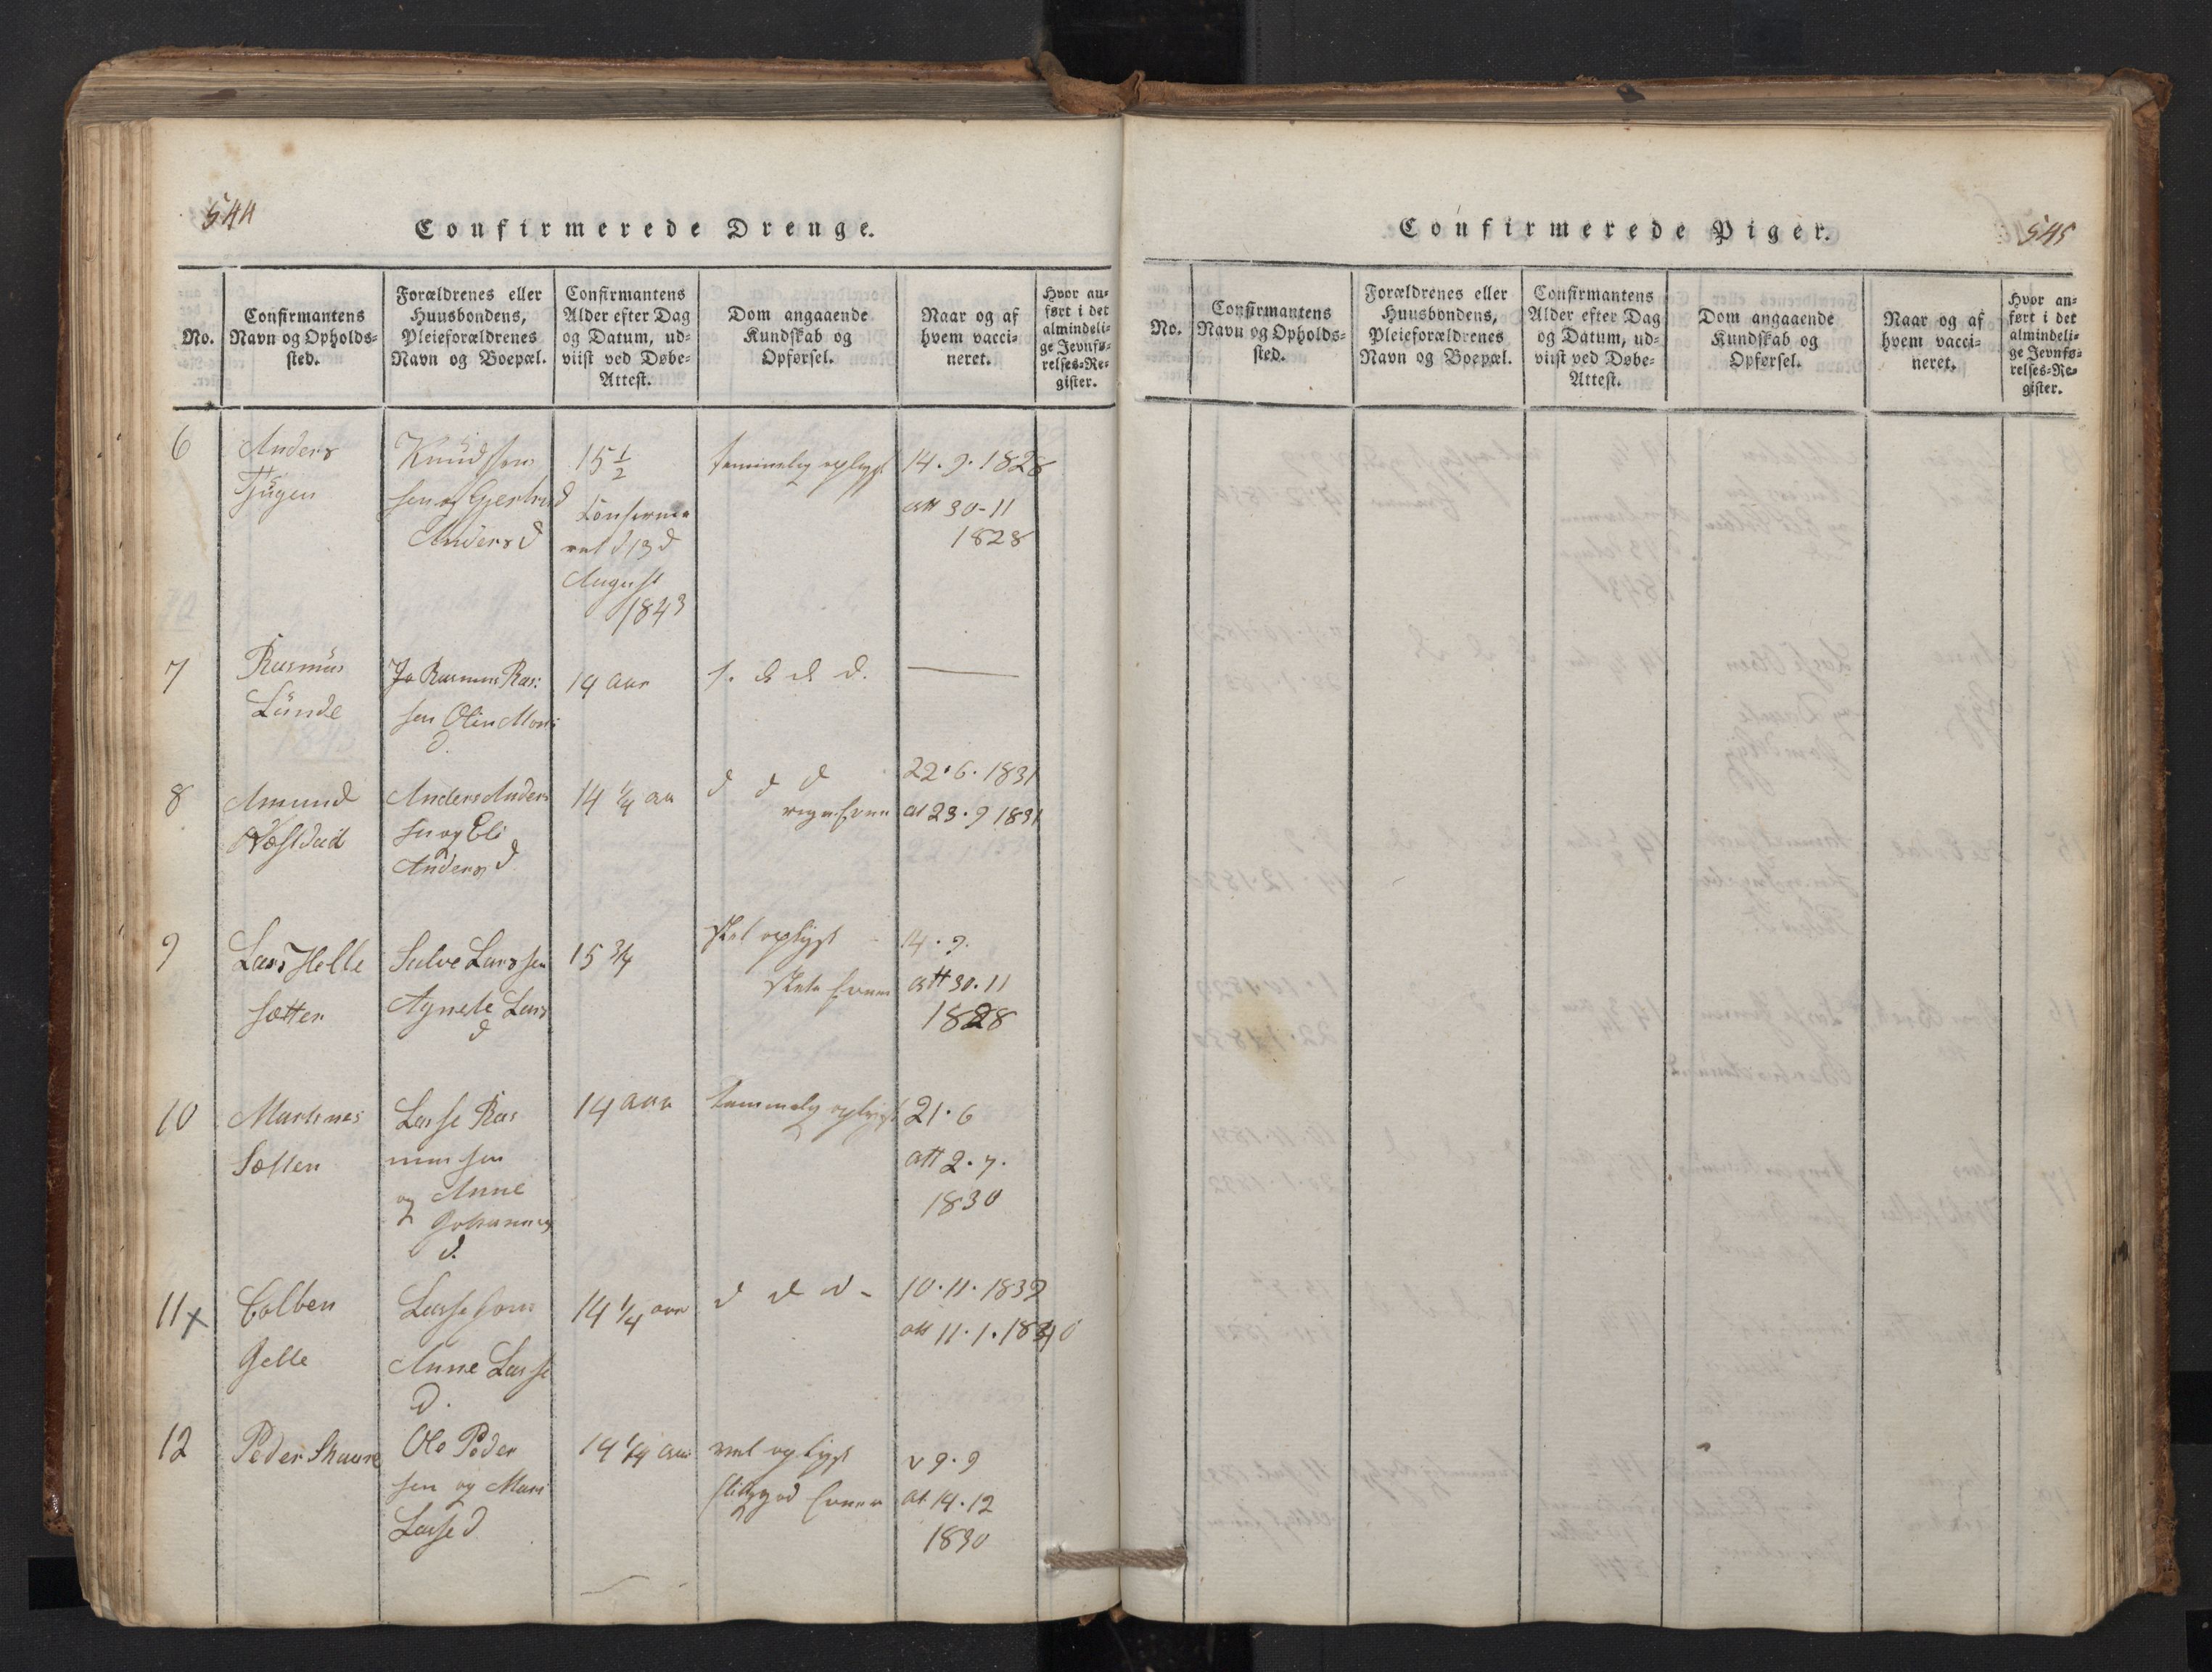 544
Confirmerede Drenge.
No.
Confirmantens
Navn og Opholds-
sted.
Forældrenes eller
Huusbondens,
Pleieforældrenes
Navn og Boepæl.
Confirmantens
Alder efter Dag
og Datum, ud-
viist ved Døbe-
Attest.
Dom angaaende
Kundskab og
Opførsel.
Naar og af
hvem vacci-
neret.
Hvor an-
ført i det
almindeli-
ge Jevnfø-
relses-Re-
gister.
6
Anders
Knudssen
sen og Gjertrud
Anders d
15 1/2
Confirme
ret d 13 d
August
1843
temmelig oplyst
14.9.1828
att 30-11
1828
7
Rasmus
Lunde
Rasmus Ras:
sen
d.
14 aar
d d d.
8
Amund
Anders Anders
sen og Eli
Anders d
14 1/4 aa
d d d
22.6.1831
at 23.9 1831
9
Lars Helle
sætter
Salve Larssen
Agnete Lars
d
15 3/4
oplyst
14.9.
att 30.11
1828
10
Sætter
Lasse Ras
mussen
og Anne
Johannes
d.
14 aar
temmelig oplyst
21.6
att 2.7.
1830
11 x
Colben
Lasse
Anne Lasse
d.
14 1/4 aar
d d d -
10.11.1839
att 11.1.1840
12
Peder Skaare
Ole Peder
sen og Mari
Lasse d.
14 1/4 aar
vel oplyst
v 9.9
at 14.12
1830
545
Confirmerede Piger.
No.
Confirmantens
Navn og Opholds-
sted.
Forældrenes eller
Huusbondens,
Pleieforældrenes
Navn og Boepæl.
Confirmantens
Alder efter Dag
og Datum, ud-
viist ved Døbe-
Attest.
Dom angaaende
Kundskab og
Opførsel.
Naar og af
hvem vacci-
neret.
Hvor an-
ført i det
almindeli-
ge Jevnfø-
relses-Re-
gister.